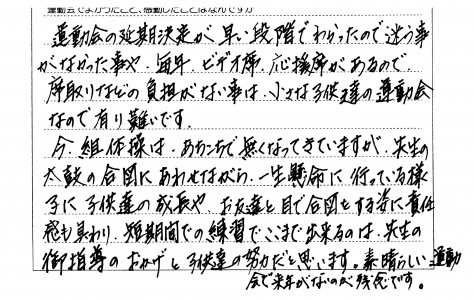 運動会でよかったこと、感動したことはなんですか
運動会の延期決定が、早い段階でわかったので迷う事
がなかった事や、毎年、ビデオ席、応援席があるので、
席取りなどの負担がない事は、小さな子供達の運動会
なので有り難いです。
今、組体操は、あちこちで無くなってきていますが、先生の
太鼓の合図にあわせながら、一生懸命に行っている様
子に子供達の成長や、お友達と目で合図をする姿に責任
感も具わり、短期間での練習でここまで出来るのは、先生の
御指導のおかげと子供達の努力だと思います。素晴らしい運動
会で来年がないのが残念です。